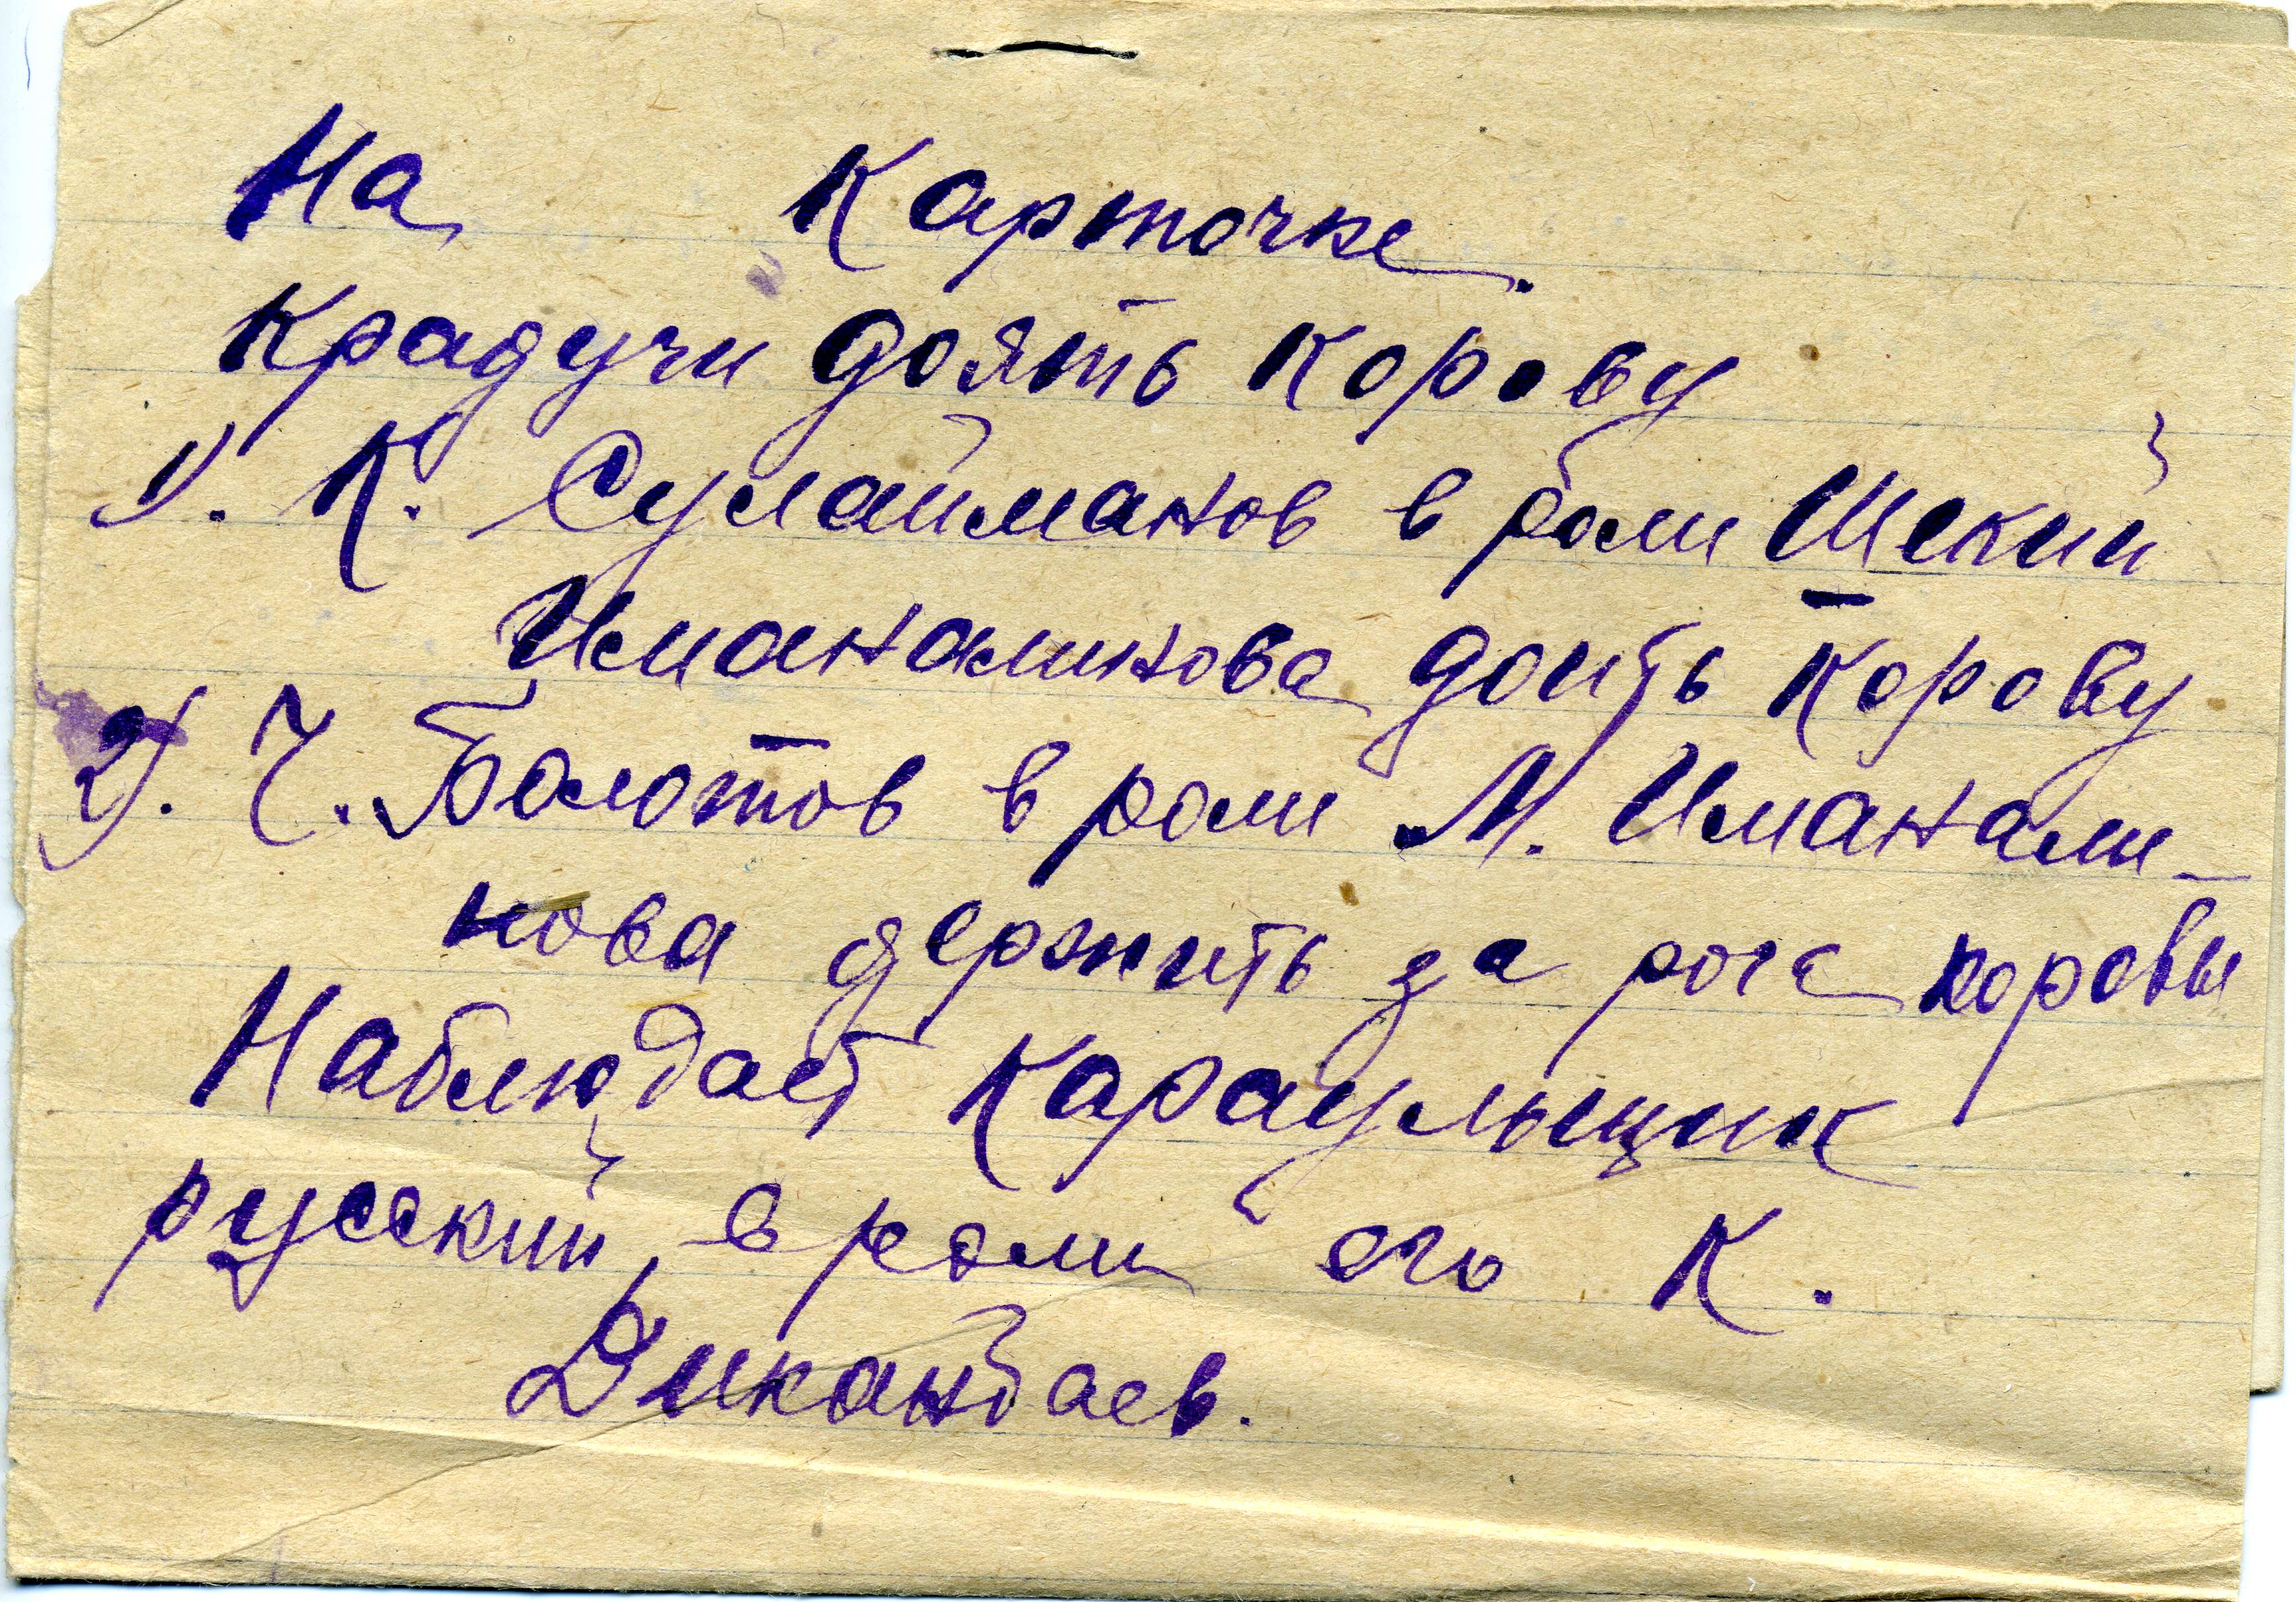 На Карточке.
крадучи доять корову
1). К. Сулайманов в роли Шекий
Иманалинова доить корову
2). Ч. Болотов в роли М. Иманали-
нова держить за рога коровы
Наблюдает Караульщик
русский, в роли его К.
Диканбаев.